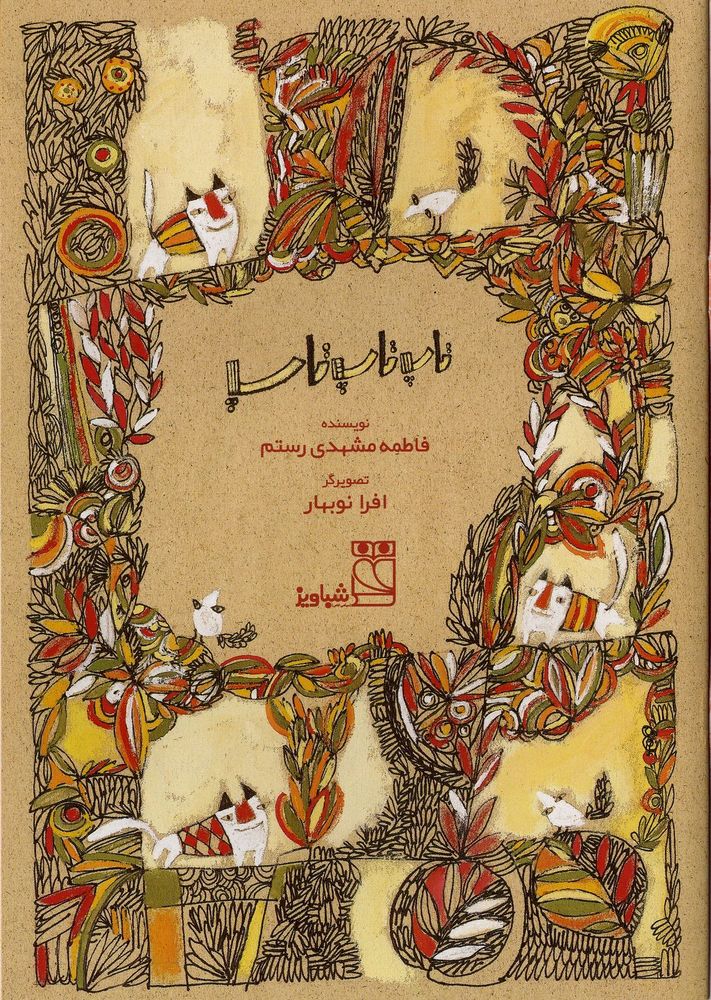 تاپ تاپ تاپ
نویسنده
فاطمه مشهدی رستم
تصویرگر
افرا نوبهار
شباویز